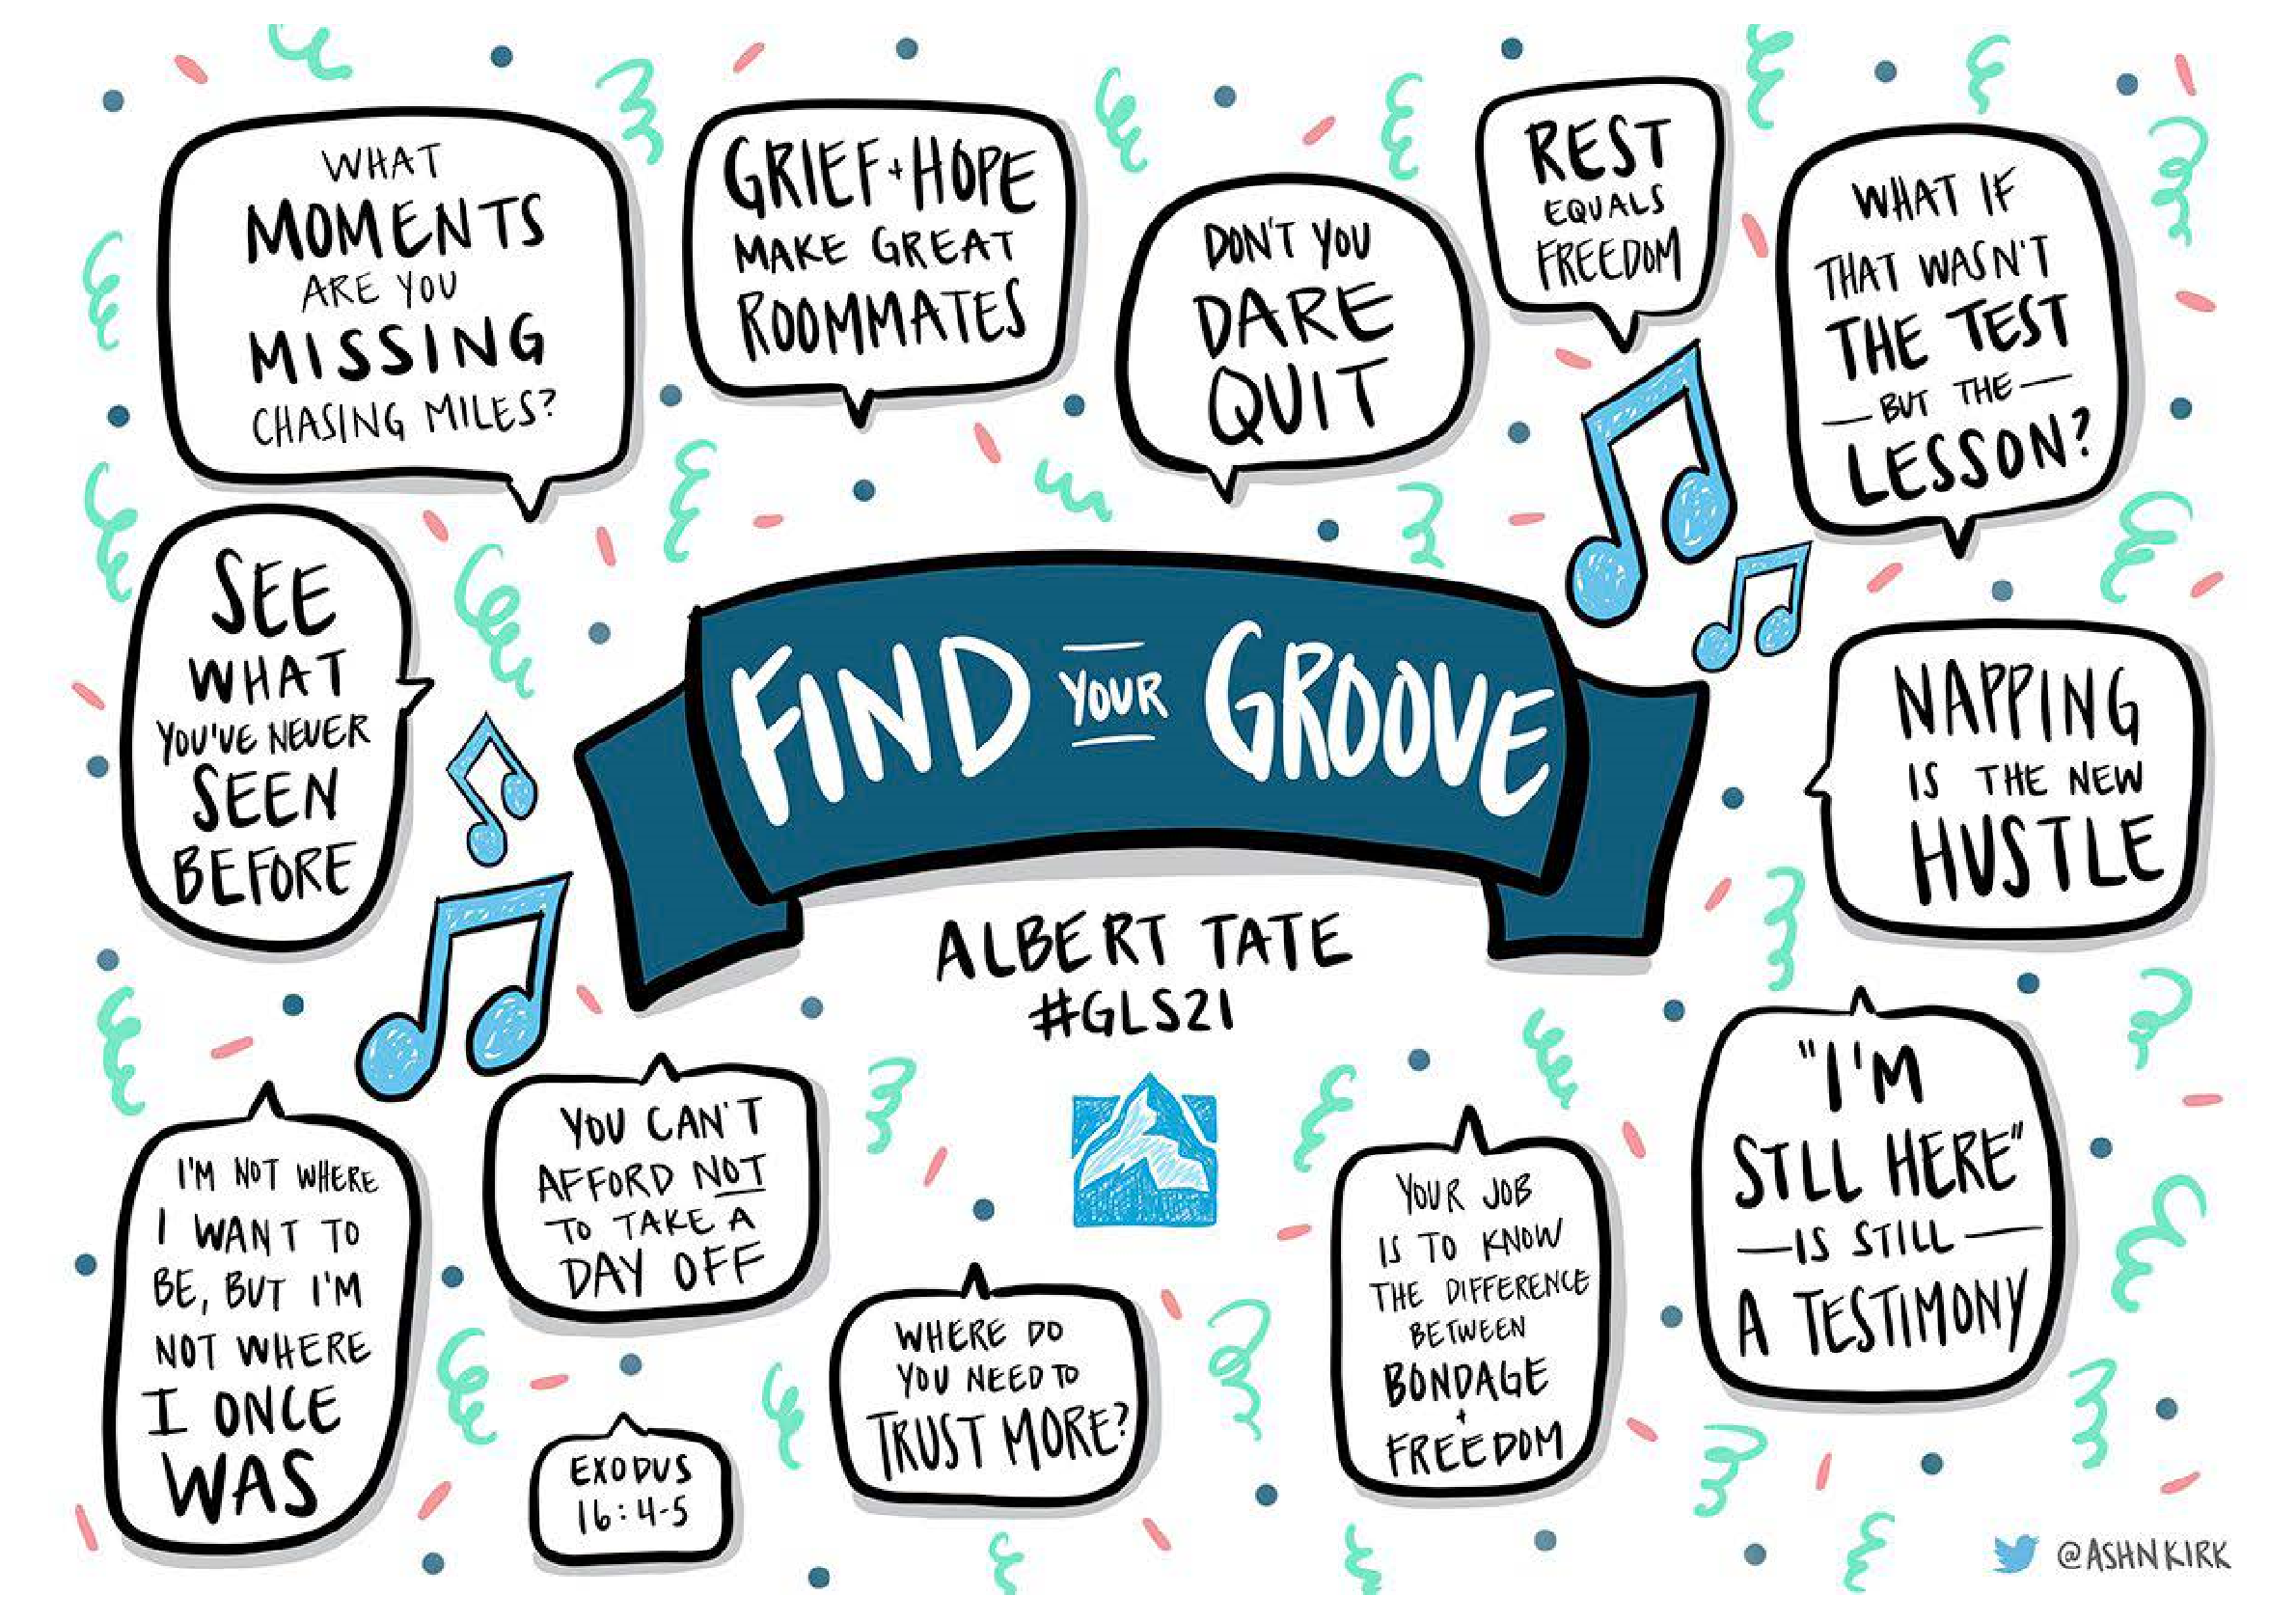 WHAT
MOMENTS
ARE YOU
MISSING
CHASING MILES?
GRIEF + HOPE
MAKE GREAT
ROOMMATES
DON'T YOU
DARE
QUIT
REST
EQUALS
FREEDOM
WHAT IF
THAT WASN'T
THE TEST
— BUT THE —
LESSON?
SEE
WHAT
YOU'VE NEVER
SEEN
BEFORE
FIND YOUR GROOVE
ALBERT TATE
#GLS21
NAPPING
IS THE NEW
HUSTLE
I'M NOT WHERE
I WANT TO
BE, BUT I'M
NOT WHERE
I ONCE
WAS
YOU CAN'T
AFFORD NOT
TO TAKE A
DAY OFF
EXODUS
16:4-5
WHERE DO
YOU NEED TO
TRUST MORE?
YOUR JOB
IS TO KNOW
THE DIFFERENCE
BETWEEN
BONDAGE
+
FREEDOM
"I'M
STLL HERE"
— IS STILL —
A TESTIMONY
@ASHNKIRK